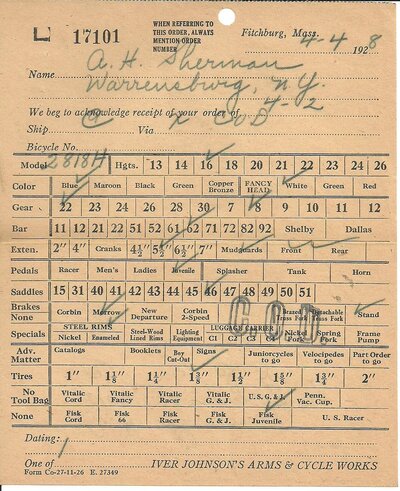 L 17101 WHEN REFERRING TO THIS ORDER, ALWAYS MENTION ORDER NUMBER Fitchburg, Mass. 4-4 1928
Name A. H. Sherman
Warrensburg, N.Y.
We beg to acknowledge receipt of your order of 4-2
Ship @ Via x COD
Bicycle No.
Model 2818H Hgts. 13 14 16 18 20 21 22 23 24 26
Color Blue Maroon Black Green Copper Bronze FANCY HEAD White Green Red
Gear 22 23 24 26 28 30 7 8 9 10 11 12
Bar 11 12 21 22 51 52 61 62 71 72 82 92 Shelby Dallas
Exten. 2" 4" Cranks 4½" 5½" 6½" 7" Mudguards Front Rear
Pedals Racer Men's Ladies Juvenile Splasher Tank Horn
Saddles 15 31 30 40 42 41 44 45 46 47 48 49 50 51
Brakes None Corbin Morrow New Departure Corbin 2-Speed C.O.D. Brazed Truss Fork Detachable Truss Fork Stand
Specials STEEL RIMS Nickel Enameled Steel-Wood Lined Rims Lighting Equipment LUGGAGE CARRIER C1 C2 C3 C Nickel Fork Spring Fork Frame Pump
Adv. Matter Catalogs Booklets Boy Cut-Out Signs Juniorcycles to go Velocipedes to go Part Order to go
Tires 1" 1⅛" 1¼" 1⅜" 1½" 1⅝" 1¾" 2"
No Tool Bag Vitalic Cord Vitalic Fancy Vitalic Racer Vitalic G. & J. U.S. G. & J. Penn. Vac. Cup.
None Fisk Cord Fisk 66 Fisk Racer Fisk G. & J. Fisk Juvenile U. S. Racer
Dating:
One of IVER JOHNSON'S ARMS & CYCLE WORKS
Form Co-27-11-26 E. 27349